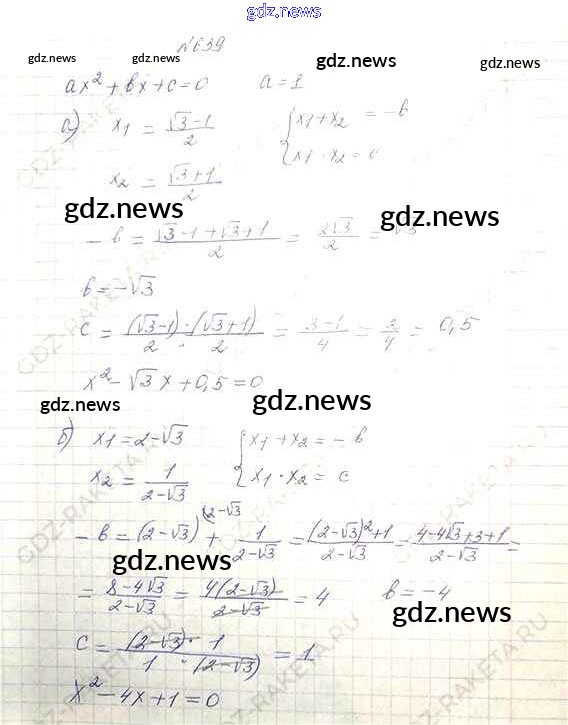 gdz.news
№639
gdz.news gdz.news gdz.news
ax² + bx + c = 0 a = 1
а) x₁ = (√3 - 1)/2 { x₁ + x₂ = -b
x₂ = (√3 + 1)/2 x₁ · x₂ = c
gdz.news gdz.news
- b = (√3 - 1 + √3 + 1)/2 = 2√3/2 = √3
b = -√3
c = (√3-1)·(√3+1)/2·2 = (3-1)/4 = 2/4 = 0,5
x² - √3x + 0,5 = 0
gdz.news gdz.news
б) x₁ = 2 - √3 { x₁ + x₂ = - b
x₂ = 1/(2-√3) x₁ · x₂ = c
- b = (2-√3)^(2-√3 + 1/(2-√3) = ((2-√3)²+1)/(2-√3) = (4-4√3+3+1)/(2-√3) =
gdz.news
= (8-4√3)/(2-√3) = 4(2-√3)/(2-√3) = 4 b = -4
gdz.news
c = (2-√3)·1/1·(2-√3) = 1
gdz.news
x² - 4x + 1 = 0
GDZ-RAKETA.RU